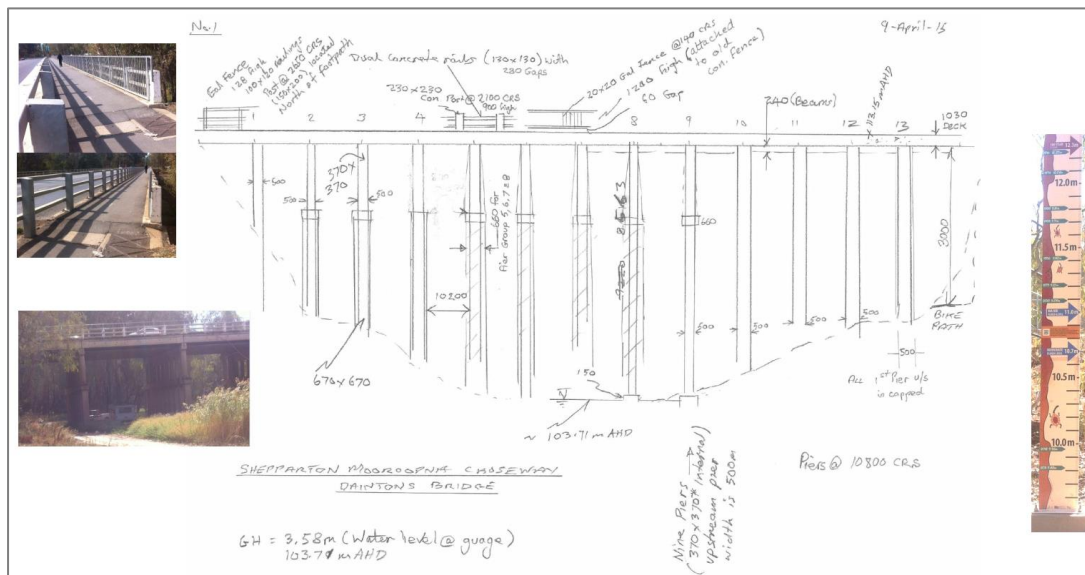 No.1
9-April-15
Gal Fence
128 High
100x120 Headings
Post @ 2650 CRS
(150x200) located
North of footpath
Dual Concrete rails (130x130) with
280 Gaps
230x230
Con. Post @ 2100 CRS
900 High
20x20 Gal fence @ 140 CRS
1200 High (attached
to old
con. fence)
60 Gap
240 (Beam)
x 113.15 mAHD
1030
DECK
1
2
3
4
8
9
10
11
12
13
500
500
370x
370
500
660 for
Pier Group 5, 6, 7 & 8
8563
660
3000
10200
500
500
500
500
BIKE
PATH
500
ALL 1st Pier u/s
is capped
670x670
150
~ 103.71 m AHD
SHEPPARTON MOOROOPNA CAUSEWAY
DAINTONS BRIDGE
Piers @ 10800 CRS
Nine Piers
(370x370* internal)
upstream pier
width is 500m
GH = 3.58m (Water level @ guage)
103.71 m AHD
12.0m
11.5m
10.5m
10.0m